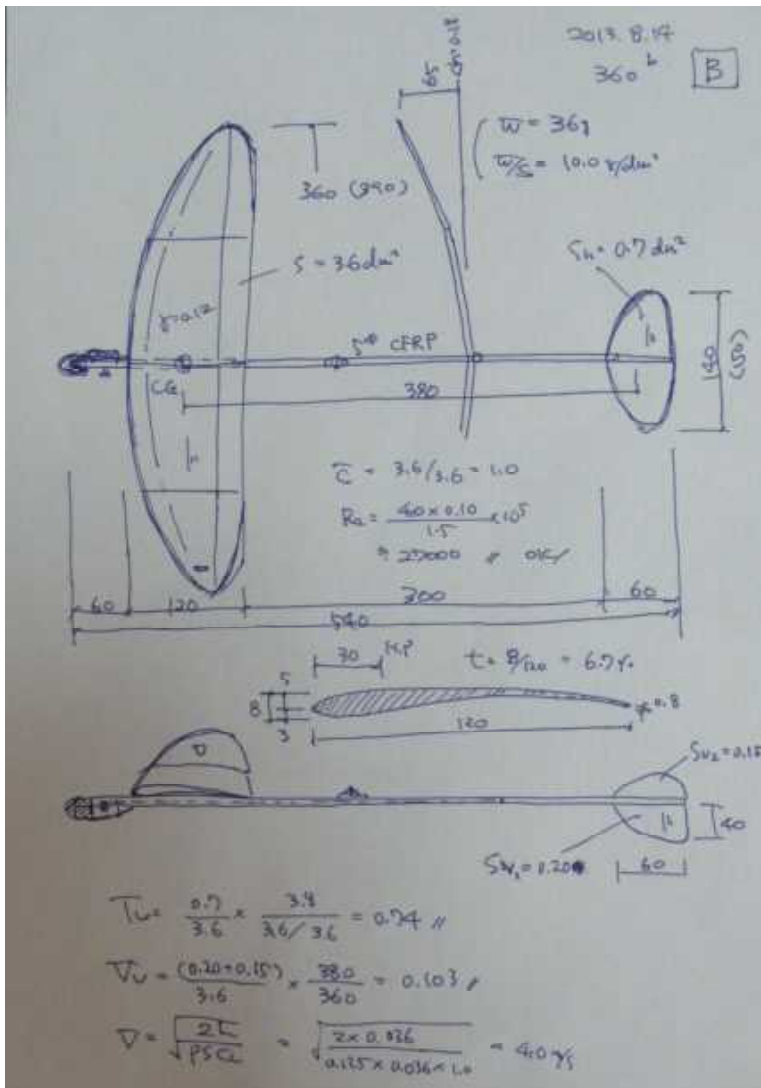 2013. 8.14
360ᵇ B
65
W = 36g
W/S = 10.0 g/dm²
360 (390)
S = 3.6 dm²
Sh = 0.7 dm²
5ᵐᵠ CFRP
CG
380
140
(150)
C̄ = 3.6/3.6 = 1.0
Re = 4.0 × 0.10 / 1.5 × 10⁵
≒ 27000 〃 OK/
60 120 300 60
540
30 H.P t = 8/120 = 6.7%
5
8
3
0.8
120
Sv₂ = 0.15
40
Sv₁ = 0.20
60
= 0.7/3.6 × 3.8/(3.6/3.6) = 0.74 〃
Vv = (0.20+0.15)/3.6 × 380/360 = 0.103 〃
V = √(2L/ρSCL) = √(2 × 0.036/0.125 × 0.036 × 1.0) = 4.0 m/s